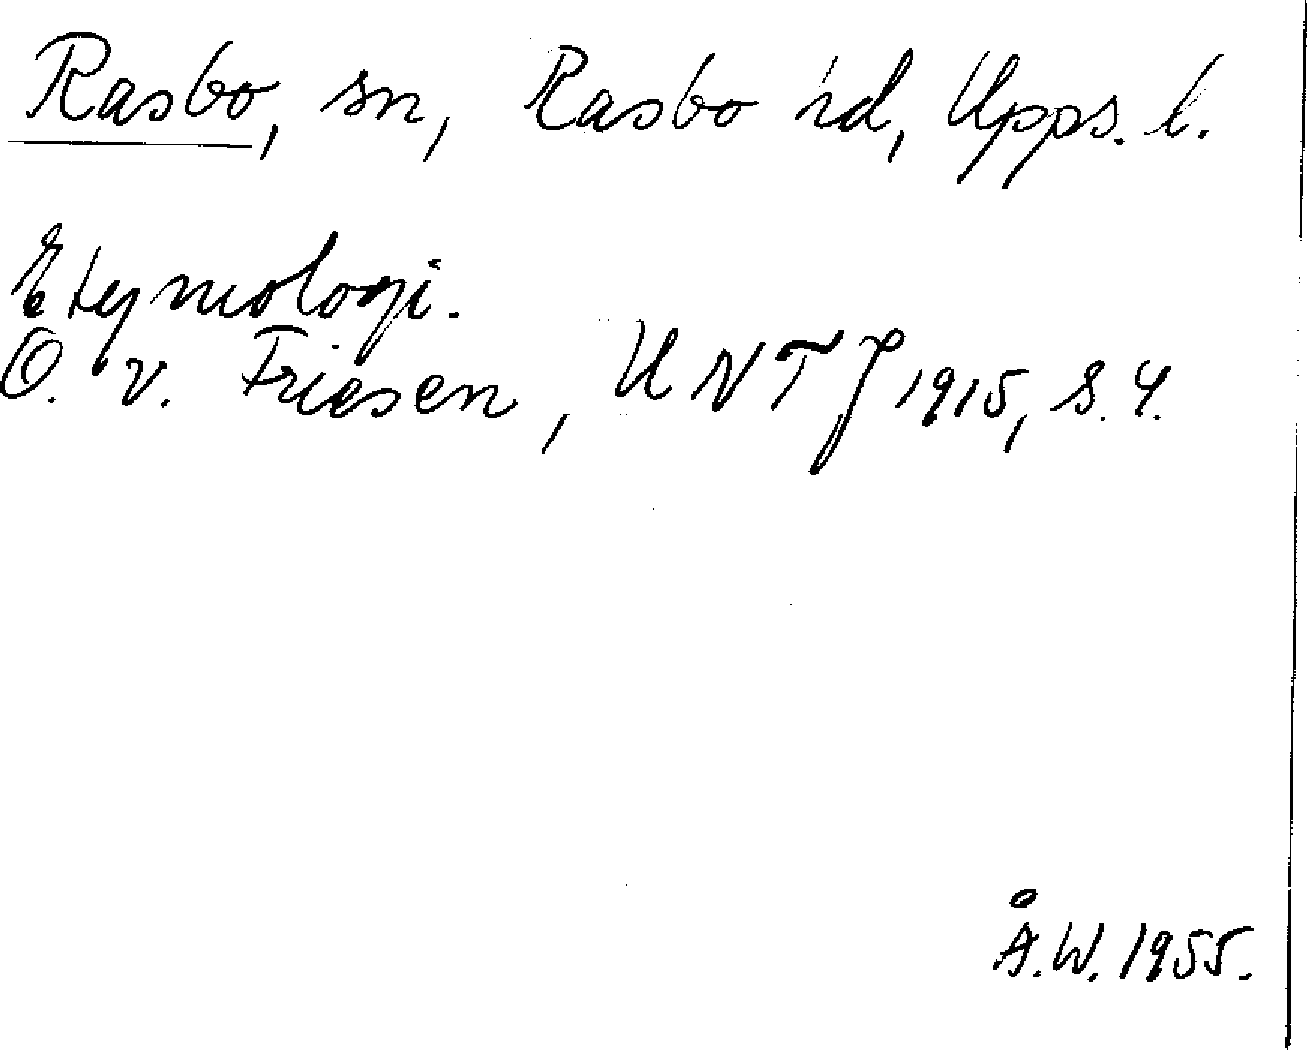 Rasbo, sn, Rasbo hd, Upps. l.
Etymologi.
O. v. Friesen, UNTJ 1915, s. 4.
Å.W. 1955.